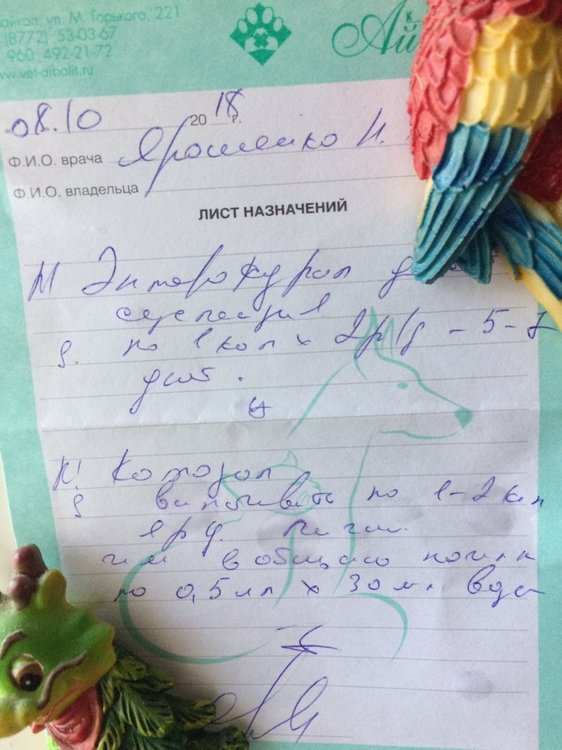 айкоп, ул. М. Горького, 221
(8772) 53-03-67
960 492-21-72
www.vet-aibolit.ru
Ай
08.10 2018 г.
Ф.И.О. врача Ярошенко Н.
Ф.И.О. владельца
ЛИСТ НАЗНАЧЕНИЙ
Энтерофурил
суспензия
по 1 кап х 2 р/д - 5-7
дней.
выпаивать по 1-2 кап
1 р д.
или в общую поилк
по 0,5 мл х 30 мл воды